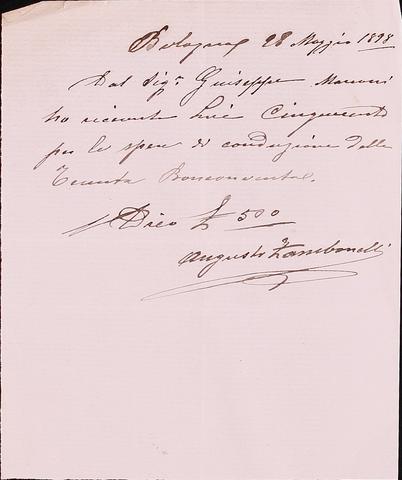 Bologna 28 Maggio 1898
Dal Sigr Giuseppe Marconi
ho ricevute Lire Cinquecento
per le spese di conduzione della
Tenuta Bonconvento.
Dico £ 500
Augusto Zambonelli